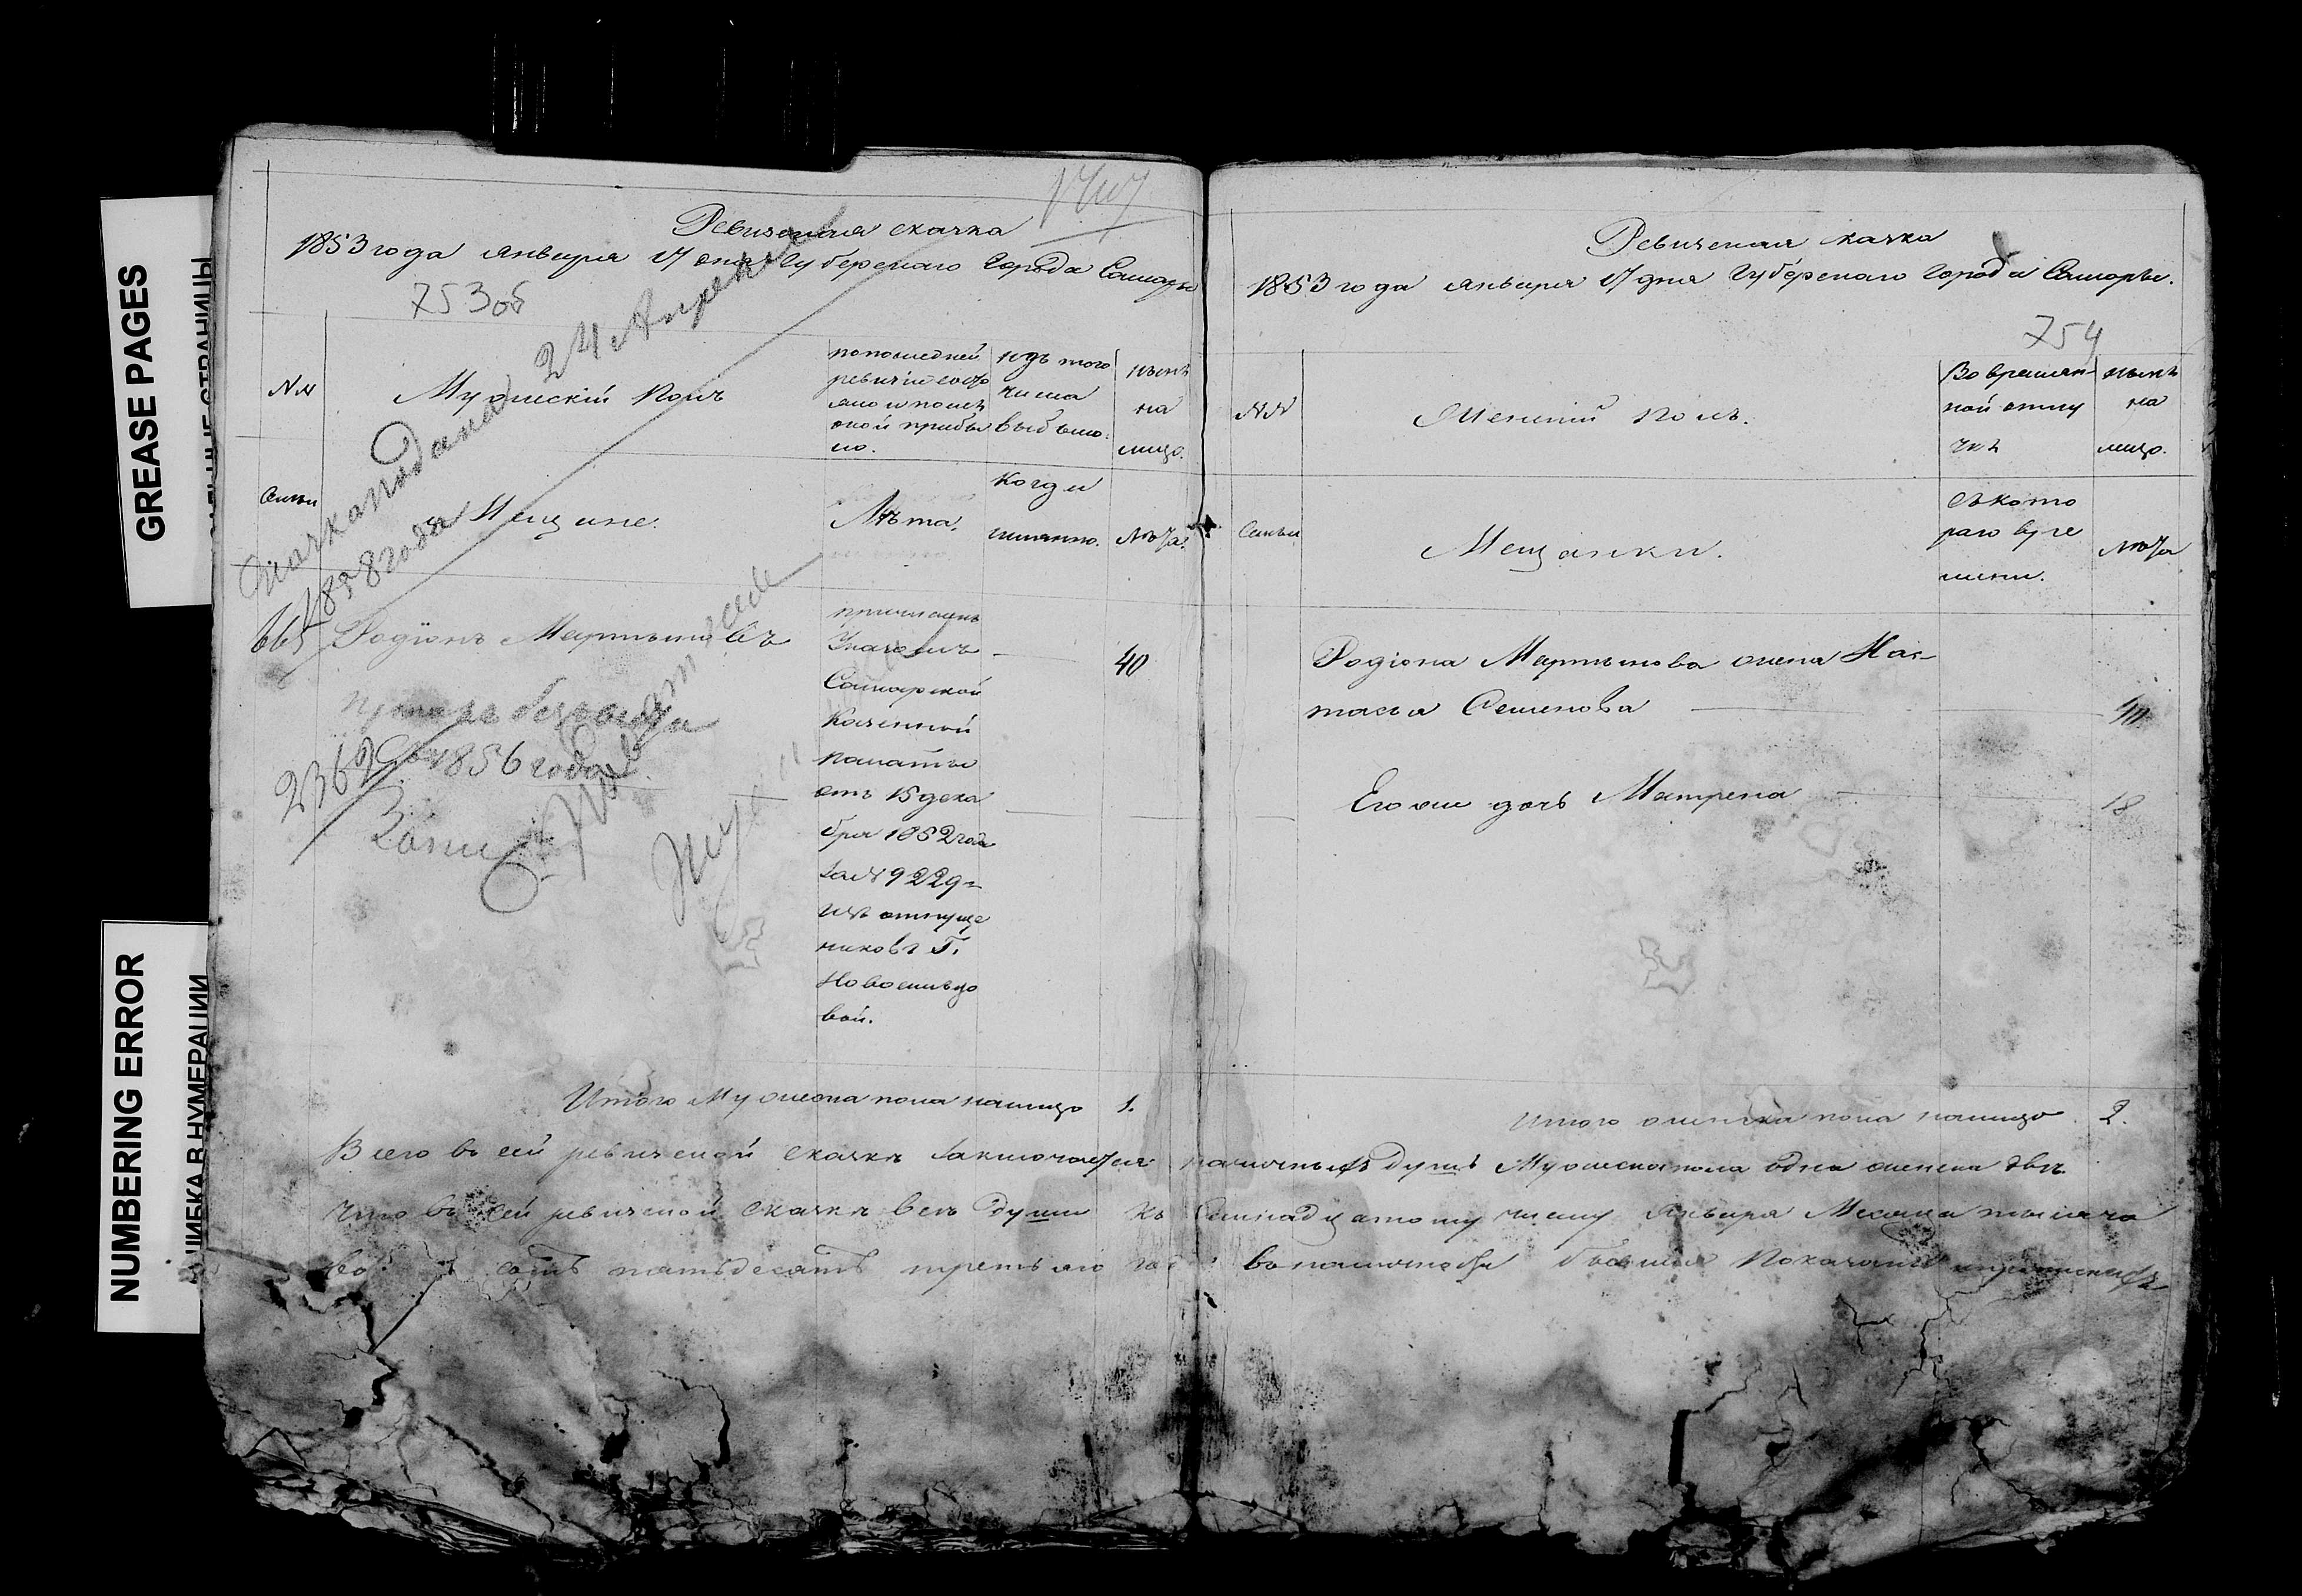 GREASE PAGES
NUMBERING ERROR
ОШИБКА В НУМЕРАЦИИ
Ревизская сказка
1853 года января 17 дня Губернскаго Города Самары
753 об
24 Апреля
№№
Мужескій полъ
по последней
ревизіи состо
яло и после
оной прибы
ло.
изъ того
числа
выбыло.
ныне
на
лицо.
Семьи
Мещане.
Лета.
Когда
именно.
Лета.
Сказка подана
1858 года
665
Родіонъ Мартыновъ
причисленъ
Указомъ
Самарской
Казенной
Палаты
отъ 15 дека
бря 1852 года
за № 9229
изъ отпуще
никовъ Г.
Новосильцо
вой.
40
1856 года
Итого Мужеска пола налицо 1.
Ревизская сказка
1853 года января 17 дня Губернскаго Города Самары.
754
№№
Женскій полъ.
Во времян
ной отлу
чке
ныне
на
лицо.
Семьи
Мещанки.
Съ кото
раго вре
мени.
Лета
Родіона Мартынова жена Нас-
тасья Семенова
40
Его же дочь Матрена
18
Итого женска пола налицо 2.
Всего въ сей ревизской сказке заключается наличныхъ душъ Мужеска пола одна женска две
Что въ сей ревизской сказке все души къ Семнадцатому числу Января Месяца тысяча
сотъ пятьдесятъ третьяго года въ наличности бывшія показаны